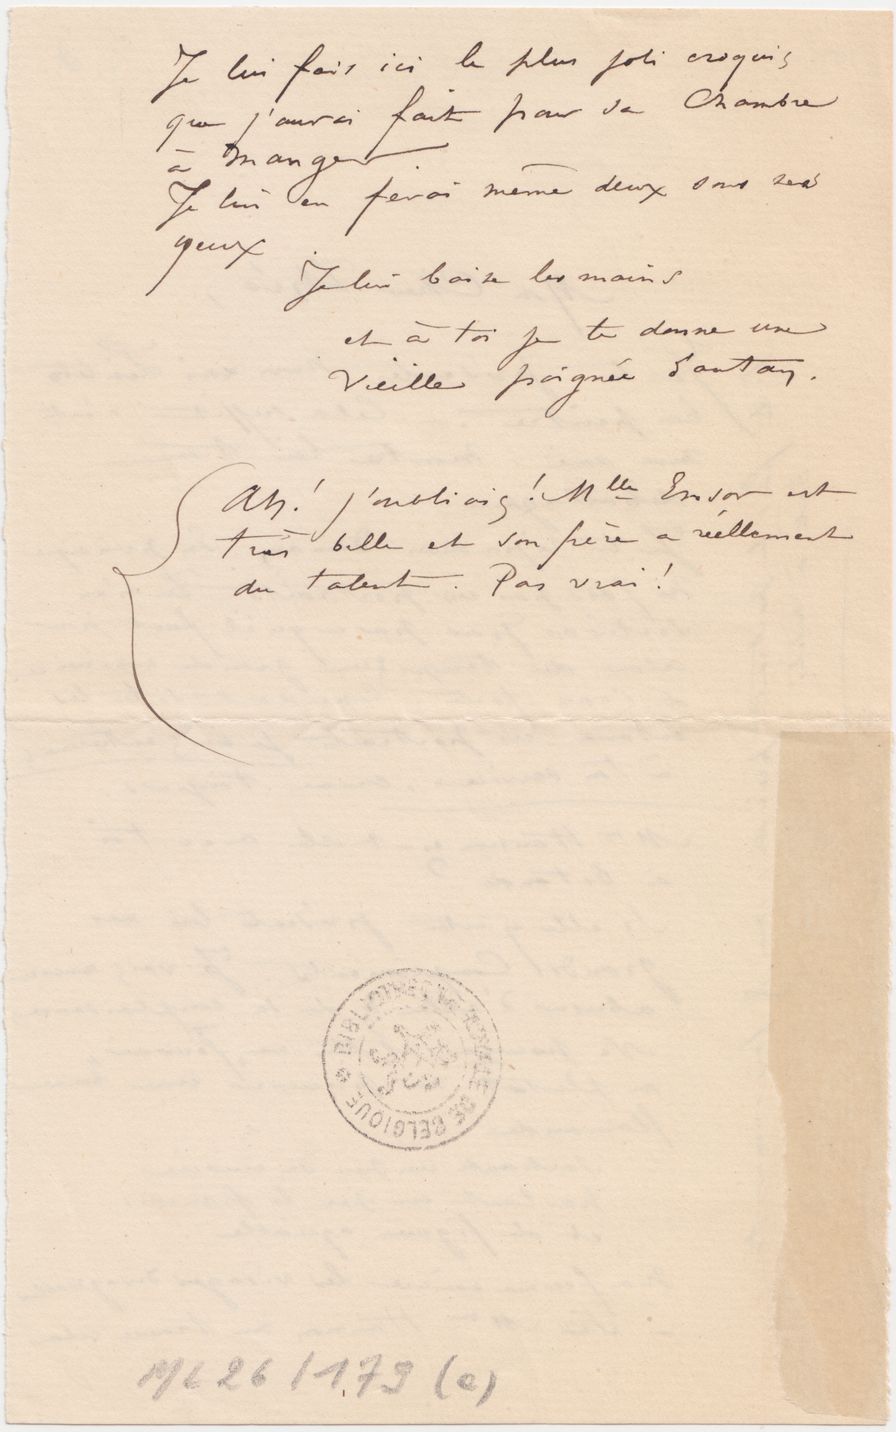 Je lui fais ici le plus joli croquis
que j'aurai fait pour sa Chambre
à manger
Je lui en ferai même deux sous ses
yeux
Je lui baise les mains
et à toi je te donne une
vieille poignée d'antan.
Ah! j'oubliais! Mlle Ensor est
très belle et son frère a réellement
du talent. Pas vrai!
BIBLIOTHÈQUE ROYALE DE BELGIQUE
ML 26/179 (e)